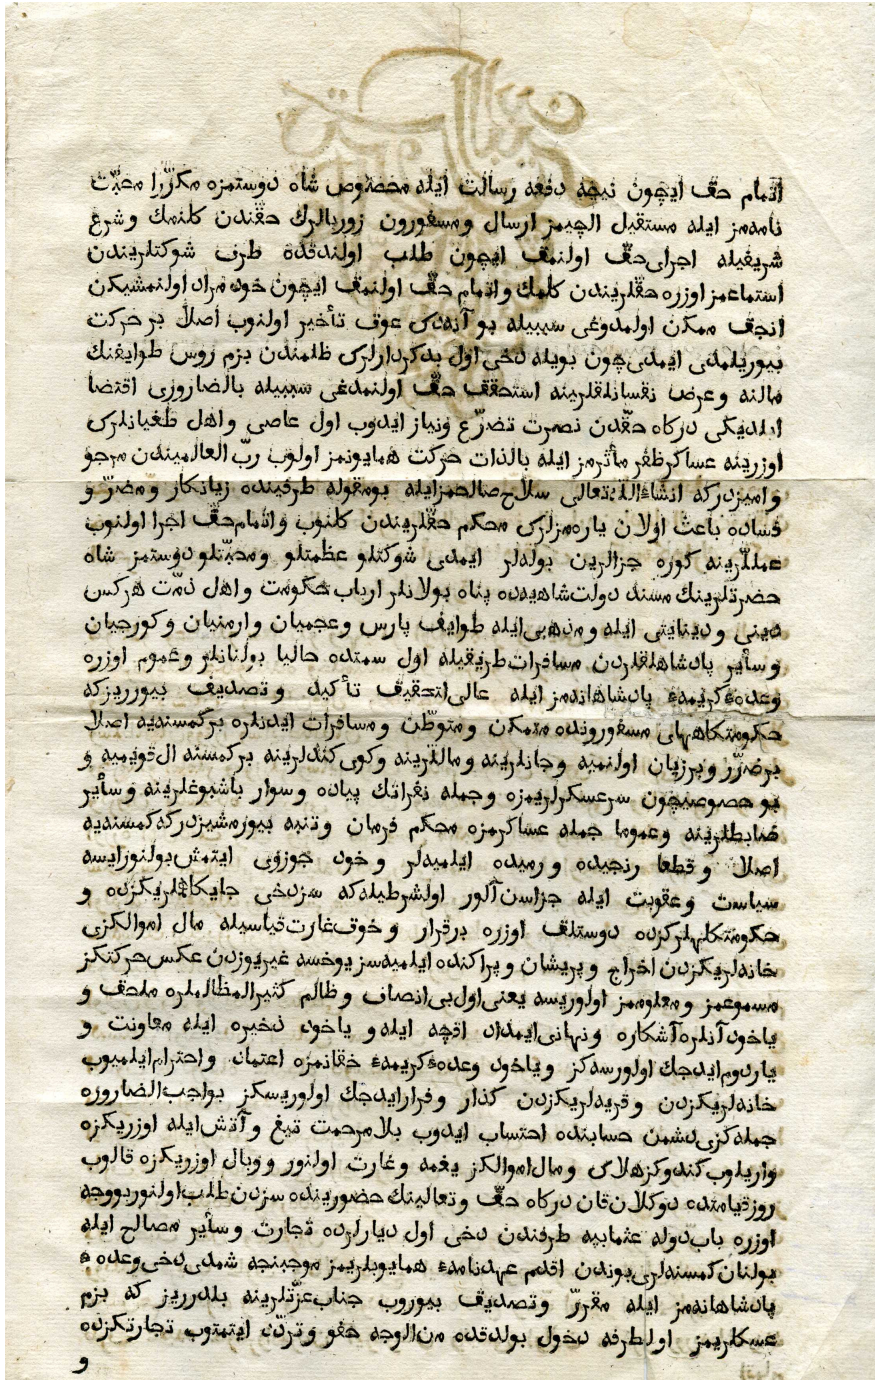 اتمام حق ایچون نیچه دفعه رسالت ایله مخصوص شاه دوستمزه مکرّرا محبّت
نامه‌مز ایله مستقیل الچیمز ارسال ومسفورون زوربالرك حقندن کلنمك وشرع
شریفیله اجرای حقّ اولنمق ایچون طلب اولندقده طرف شوکتلریندن
استماعمز اوزره حقلریندن کلمك واتمام حقّ اولنمق ایچون خود مراد اولنمشیکن
انجق ممکن اولمدوغی سببیله بو آنه‌دك عوق تأخیر اولنوب أصلا بر حرکت
بیوریلمدی ایمدی چون بویله دخی اول بدکردارلرك ظلمندن بزم روس طوایفنك
مالنه وعرض نقسانلقلرینه استحقق حقّ اولنمدغی سببیله بالضاروری اقتضا
ایلدیکی درکاه حقّدن نصرت تضرّع ونیاز ایدوب اول عاصی واهل طغیانلرك
اوزرینه عساکر ظفر مأثرمز ایله بالذات حرکت همایونمز اولوب ربّ العالمیندن مرجو
و امیزدرکه انشاءالله تعالی سلاح صالحمز ایله بومقوله طرفینده زیانکار ومضرّ و
فساده باعث اولان یاره‌مزلرك محکم حقّلریندن کلنوب واتمام حقّ اجرا اولنوب
عمللّرینه کوره جزالرین بوله‌لر ایمدی شوکتلو عظمتلو ومحبّتلو دوستمز شاه
حضرتلرینك مسند دولت شاهیه‌ده پناه بولانلر ارباب حکومت واهل ذمّت هرکس
دینی ودینایتی ایله ومذهبی ایله طوایف پارس وعجمیان وارمنیان وکورجیان
وسأیر پادشاهلقلردن مسافرات طریقیله اول سمتده حالیا بولنانلر وعموم اوزره
وعده‌ء کریمه‌ء پادشاهانه‌مز ایله عالی التحقیق تأکید وتصدیق بیورریزکه
حکومتکاههای مسفورونده متمکن ومتوطّن ومسافرات ایدنلره برکمسنه‌یه اصلا
برضرّر وبرزیان اولنمیه وجانلرینه ومالّلرینه وکوی کندلرینه برکمسنه ال قویمیه و
بو خصوصیچون سرعسکرلریمزه وجمله نفراتك پیاده وسوار باشبوغلرینه وسأیر
ضابطلرینه وعموما جمله عساکرمزه محکم فرمان وتنبه بیورمشیزدرکه کمسنه‌یه
اصلا وقطعا رنجیده ورمیده ایلمیه‌لر وخود جوزوی ایتمش بولنورایسه
سیاست وعقوبت ایله جزاسن آلور اولشرطیله‌که سزدخی جایکاهلریکزده و
حکومتکاهلرکزده دوستلق اوزره برقرار وخوف غارت قیاسیله مال اموالکزی
خانه‌لریکزدن اخراج وپریشان وپراکنده ایلمیه‌سز یوخسه غیریوزدن عکس حرکتکز
مسموعمز ومعلوممز اولوریسه یعنی اول بی انصاف وظالم کثیرالمظالملره ملحق و
یاخود آنلره آشکاره ونهانی ایمدای اقچه ایله و یاخود ذخیره ایله معاونت و
یاردوم ایدجك اولورسه‌کز ویاخود وعده‌ء کریمه‌ء حقانمزه اعتماد واحترام ایلمیوب
خانه‌لریکزدن وقریه‌لریکزدن کذار وفرار ایدجك اولوریسکز بواجب الضاروره
جمله‌کزی دشمن حسابنده احتساب ایدوب بلامرحمت تیغ وآتش ایله اوزریکزه
واریلوب کندوکز هلاك ومال اموالکز یغمه وغارت اولنور ووبال اوزریکزه قالوب
روزقیامتده دوکلان قان درکاه حقّ وتعالینك حضورینده سزدن طلب اولنور بووجه
اوزره باب دوله عثمانیه طرفندن دخی اول دیارلرده تجارت وسأیر مصالح ایله
بولنان کمسنه‌لری بوندن اقدم عهدنامه‌ء همایوبلریمز موجبنجه شمدی دخی وعده‌ء
پادشاهانه‌مز ایله مقررّ وتصدیق بیوروب جناب عزّتلرینه بلدرریز که بزم
عسکلریمز اولطرفه دخول بولدقده من الوجه خفو وتردّد ایتمتوب تجارتکزده
و